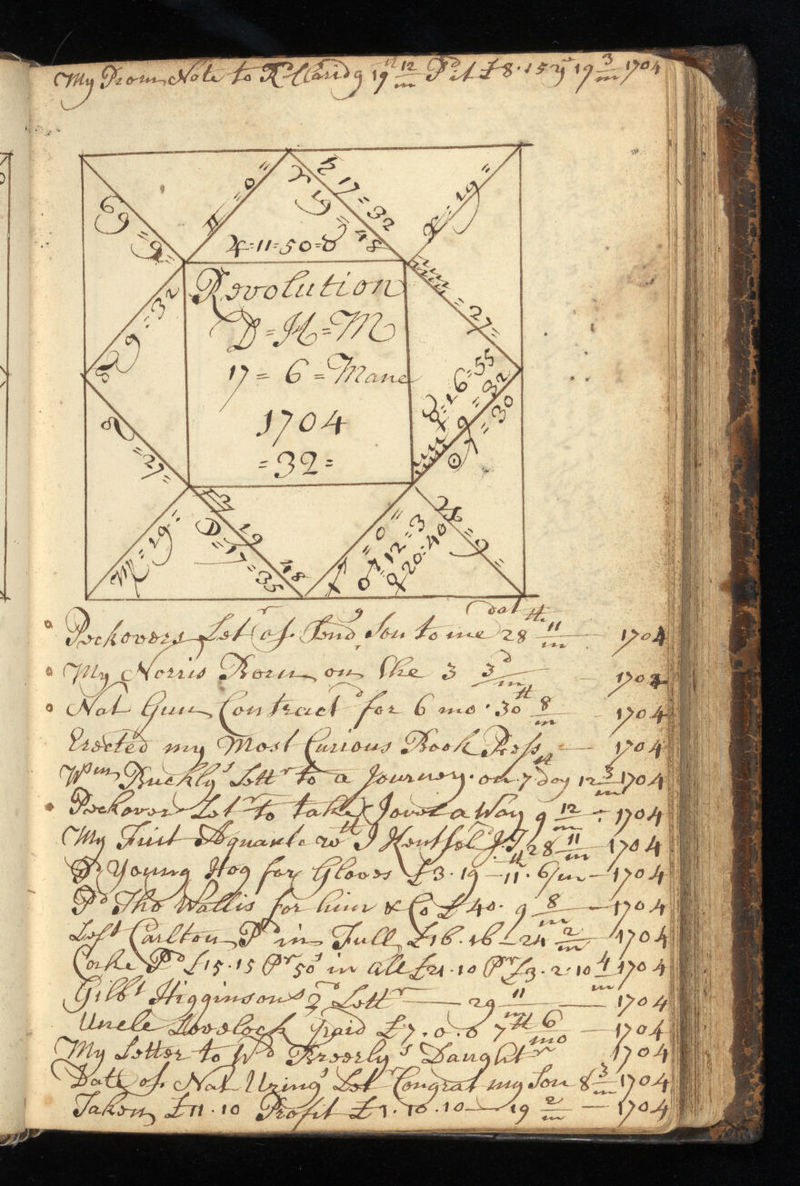 My Prom Note to Rd Claridg 19th 12/m Pd it £8.15 ye 19 3/m 1704
♋ 9 = 9 =
♊ = 0 =
♄ 17 = 32
♈ 19 = 48
♓ = 19 =
♃ = 11 = 50 = ♉
♒ = 27 =
9 = 32
Revolution
D = H = M
17 = 6 = Mane
1704
= 32 =
☿ = 16 = 55
♒ 9 = 32
☉ 7 = 30
♌ = 27 =
♍ = 19 =
♎ 19 48
☽ = 17 = 35
♐ = 0 =
♂ = 12 = 3
♀ 20 = 40
♑ = 9 =
Peckovers Letr of Send g Son to me dat 28th 11/m 1704
My Norris Born on the 3 3d/m 1704
Nat Gun Contractd for 6 mo. 30th 8/m 1704
Erected my Most Curious Book Press 1704
Wm Bucklys Lettr to a Journey. on 7st day 12 3/m 1704
Peckover Letr to take away 9 12/m 1704
My First Aquantc wth J 28 11/m 1704
Dr Young Hog for Gloves £3.19 11th. 6/m 1704
Pd Tho Wallis for him & Co £40. 9 8/m 1704
Left Carlton Pd in Full £16.16 24 2/m 1704
Coake Pd £15.15 Pr 50s in all £21.10 Pr £3.2.10 4/m 1704
Gilbt Higginsons 2d Lettr 29 11/m 1704
Uncle Lovelock paid £7.0.0 7th 6/mo 1704
My Letter to Wd Breerlys Daughtr 1704
Date of Nat Urings Letr Congrat my Son 8 3/m 1704
Taken £11.10 Profit £1.10.10 19 2/m 1704